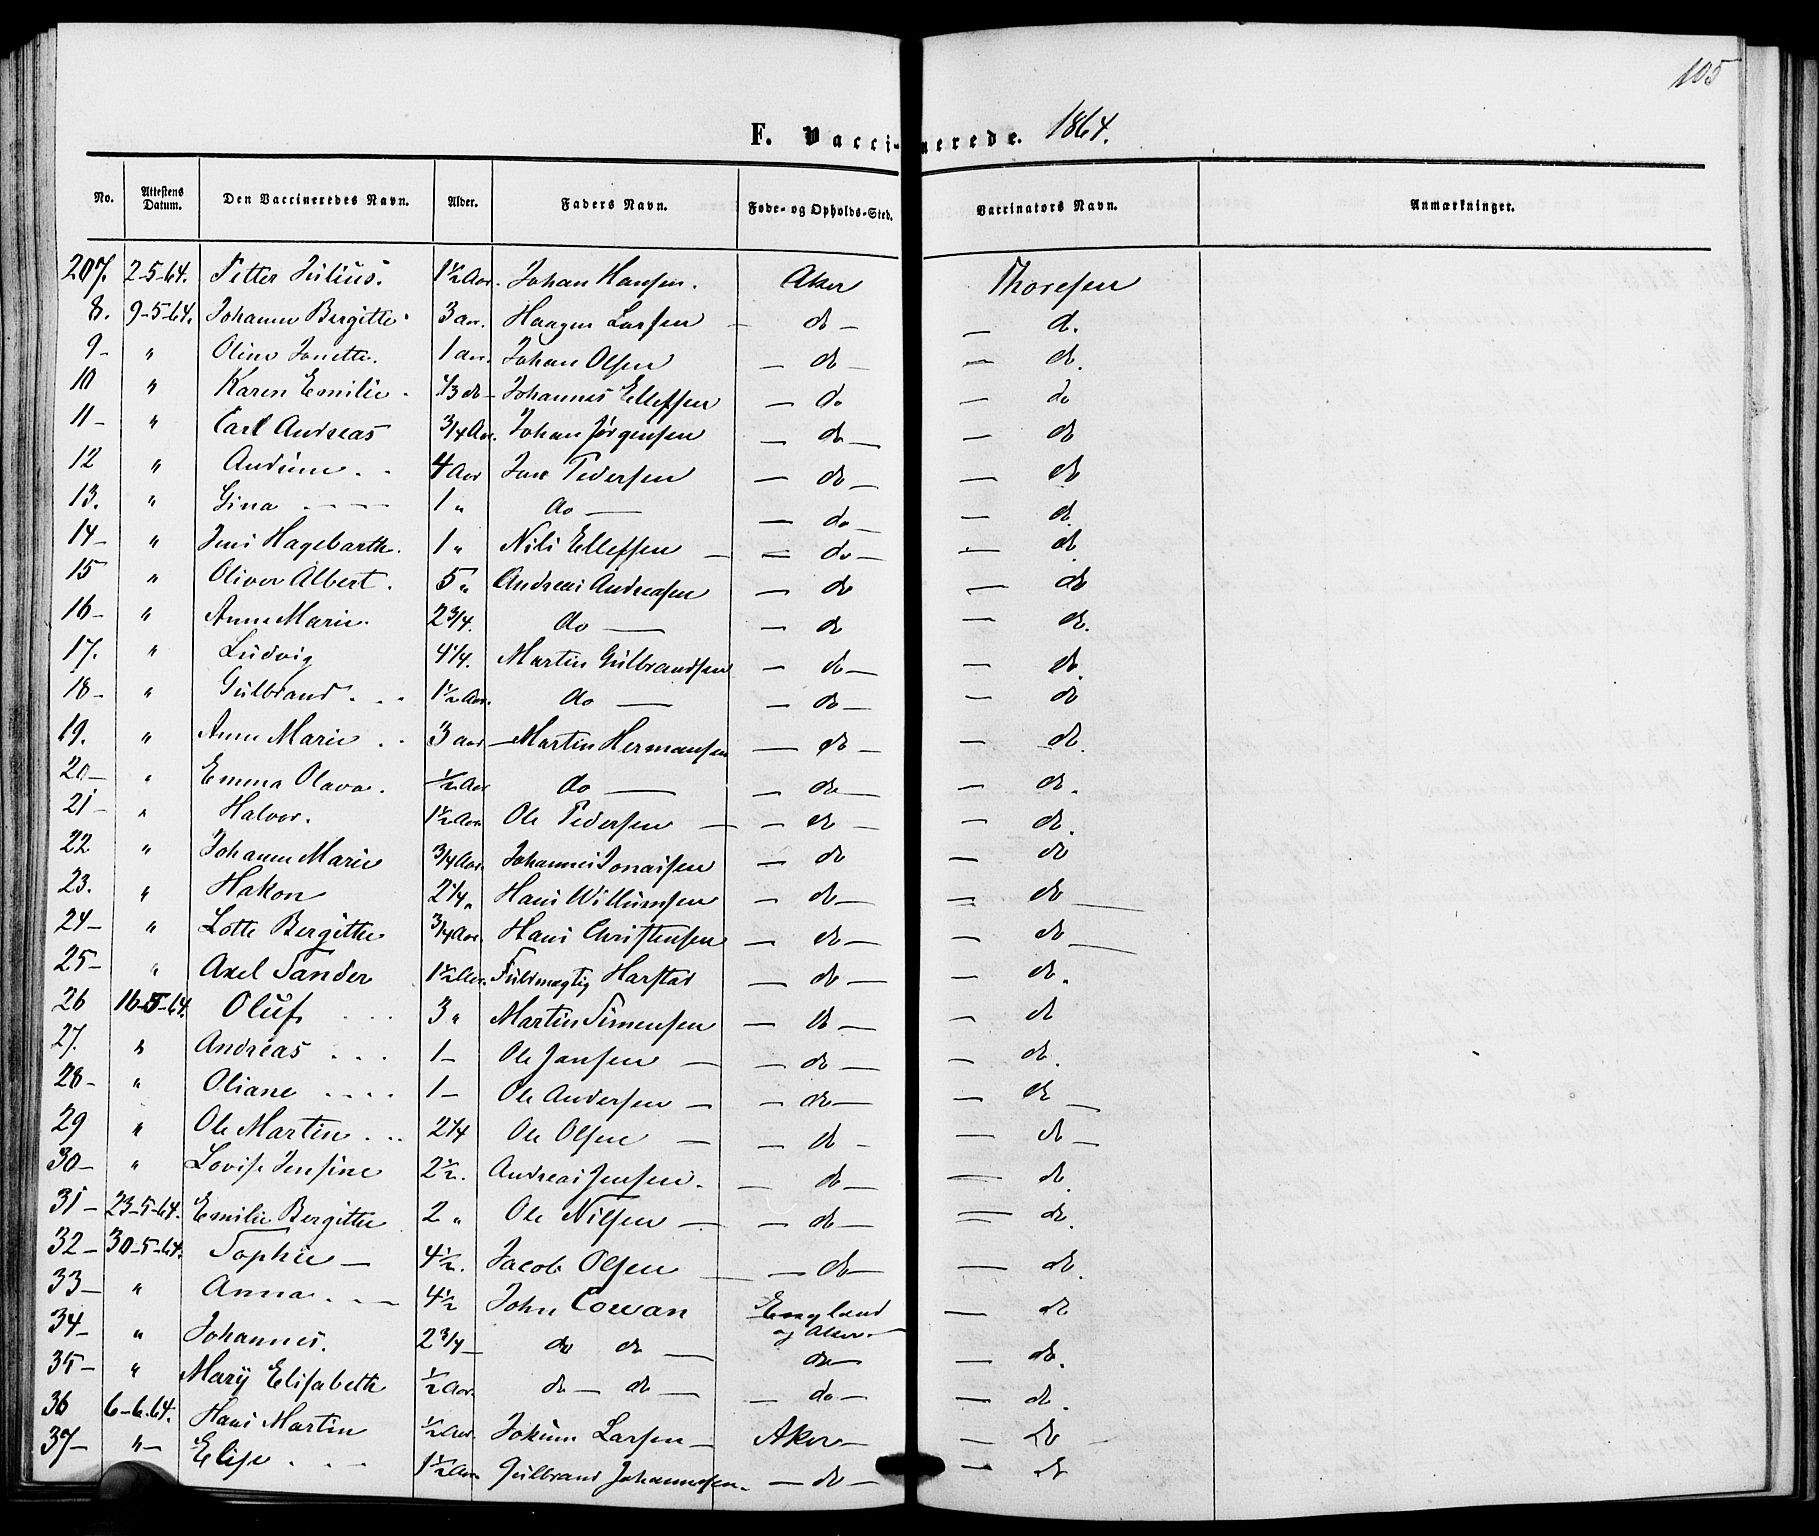 105
F. Vaccinerede. 1864.
No. Attestens Datum. Den Vaccineredes Navn. Alder. Faders Navn. Føde- og Opholds-Sted. Vaccinators Navn. Anmærkninger.
207. 2-5-64. Petter Julius. 1½ Aar. Johan Hansen. Aker Thoresen
8. 9-5-64. Johanne Bergitte 3 aar. Haagen Larsen — do — — do.
9- " Oline Janette. 1 aar. Johan Olsen — do — — do.
10 " Karen Emilie. 4/3 do- Johannes Ellefsen — do — do
11- " Carl Andreas 3/4 Aar. Johan Jørgensen — do — — do
12 " Andrine . . 4 Aar Jens Pedersen — do — — do
13. " Gina - - - - 1 " do — — do — — do.
14- " Jens Hagebarth. 1 " Nils Ellefsen — — do — — do.
15 " Oliver Albert. 5 " Andreas Andreasen — do — do
16- " Anne Marie. 2 3/4. do — — do — do.
17. " Ludvig 4 1/4. Martin Gulbrandsen — do — — do.
18- " Gulbrand . . . 1½ Aar. do — — do — — do
19. " Anne Marie . . 3 aar — Martin Hermansen — do — — do.
20- " Emma Olava. ½ Aar do — — do — — do.
21- " Halvor. 1½ Aar. Ole Pedersen — — do — — do.
22 " Johanne Marie 3/4 Aar. Johannes Jonassen — do — do
23. " Hakon 2 1/4 " Hans Willumsen — do — — do —
24- " Lotte Bergitte 3/4 Aar. Hans Christensen — do — — do —
25- " Axel Sander 1½ Aar. Fuldmægtig Harstad — do — — do.
26 16-5-64. Oluf . . . 3 " Martin Simensen — do — — do
27. " Andreas . . . 1- Ole Jansen — — do — — do.
28- " Oliane . . . . 1- Ole Andersen — — do — — do —
29 " Ole Martin . . . 2 1/4 Ole Olsen — — do - — do —
30- " Lovise Jensine 2½. Andreas Jensen. — do — — do.
31- 23-5-64. Emilie Bergitte 2 " Ole Nilsen — — do — — do.
32- 30-5-64. Sophie — 4½. Jacob Olsen — — do — — do.
33- " Anna. . — 4½ John Cowan England og Aker — — do
34- " Johannes. 2 3/4 — do do — do — — do.
35- " Mary Elisabeth ½ Aar. do — do — — do — — do.
36 6-6-64. Hans Martin ½ Aar. Jokum Larsen — Aker — — do -
37- "- Elise . . - 1½ Aar Gulbrand Johannesen. — do — — do